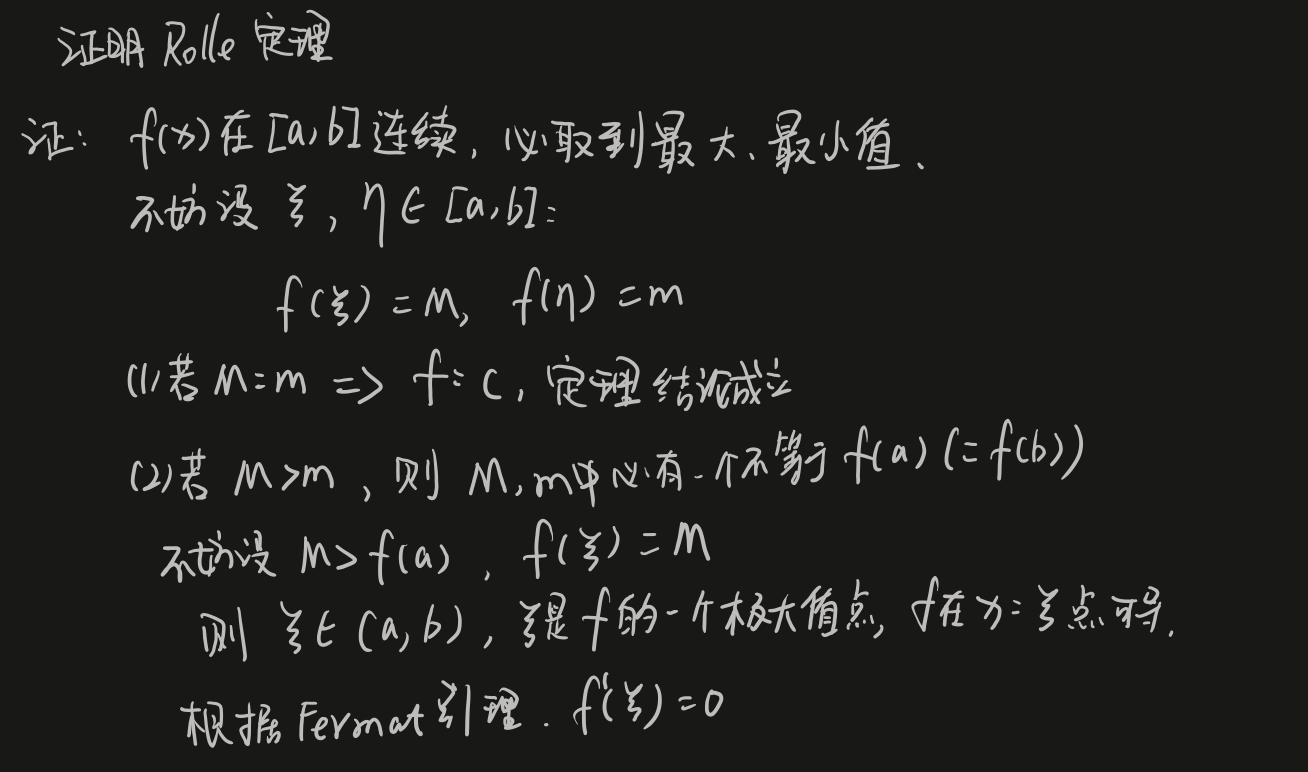 证明 Rolle 定理
证: f(x)在[a,b]连续, 必取到最大、最小值.
不妨设 ξ, η ∈ [a,b]:
f(ξ) = M, f(η) = m
(1)若 M=m => f=c, 定理结论成立
(2)若 M>m, 则 M,m中必有一个不等于 f(a) (= f(b))
不妨设 M>f(a), f(ξ) = M
则 ξ∈(a,b), ξ是f的一个极大值点, f在x=ξ点可导.
根据 Fermat 引理. f'(ξ) = 0